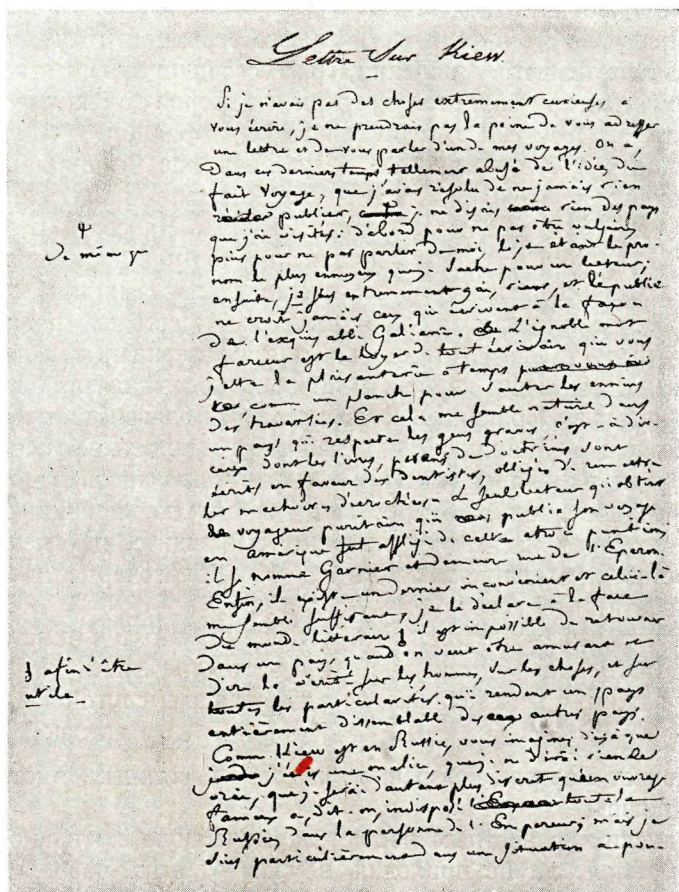 Lettre sur Kiew.
Si je n'avais pas des choses extremement curieuses à
vous écrire, je ne prendrais pas la peine de vous adresser
une lettre et de vous parler d'un de mes voyages. On a,
dans ces derniers temps tellement abusé de l'idée du
fait voyage, que j'avais résolu de ne jamais rien
publier, je ne disais rien des pays
que j'ai visités: d'abord pour ne pas être vulgaire
puis pour ne pas parler de moi, le je etant le pro-
nom le plus ennuyeux que je sache pour un lecteur;
ensuite, je suis extremement gai, rieur, et le public
ne croit jamais ceux qui écrivent à la façon
de l'exquis abbé Galiani. L'ignoble mot
farceur est le de tout écrivain qui vous
jette la plaisanterie à temps
comme un planche pour sauter les ennuis
des traversées. Et cela me semble naturel dans
un pays qui respecte les gens graves c'est-à-dire
ceux dont les livres, pesans de doctrines sont
écrits en faveur des dentistes, obligés de remettre
les machoires décrochées. Le seul lecteur qu'obtint
le voyageur puritain qui publia son voyage
en amérique fut affligé de cette atroce punition
il se nomme Garnier et demeure rue de l'Eperon.
Enfin, il existe un dernier inconvénient et celui-là
me semble suffisant, je le déclare à la face
du monde litteraire il est impossible de retourner
dans un pays, quand on veut être amusant
dire la vérité sur les hommes, sur les choses, et sur
toutes les particularités qui rendent un pays
entièrement dissemblable des autres pays.
Comme Kiew est en Russie, vous imaginez déjà que
j'ais une malice, que je n'oserai rien
que je serai d'autant plus discret qu'un ouvrage
fameux a, dit-on, indisposé toute la
Russie dans la personne de l'Empereur; mais je
suis particulièrement dans une situation à pou-
de même que
afin d'être
utile